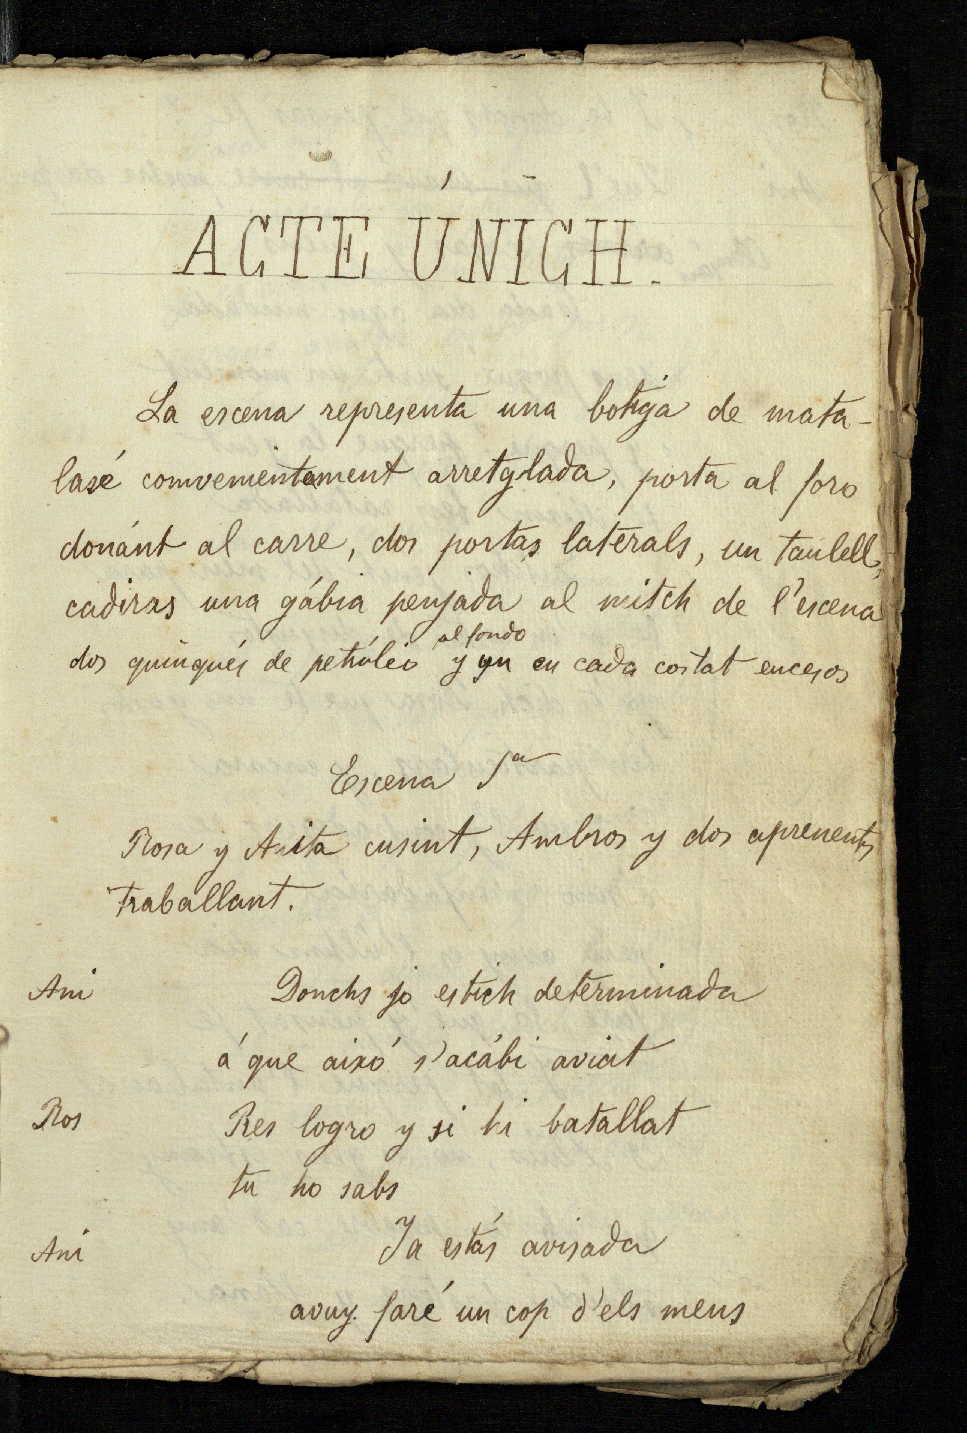 ACTE ÚNICH.
La escena representa una botiga de mata-
lasé comvenientement arretglada, porta al foro
donánt al carre, dos portas laterals, un taulell,
cadiras una gábia penjada al mitch de l'escena
al fondo
dos quinqués de petróleo y un en cada costat encesos
Escena 1a
Rosa y Anita cusint, Ambros y dos aprenents
traballant.
Ani Donchs jo estich determinada
á que aixó s'acábi aviat
Ros Res logro y si hi batallat
tu ho sabs
Ani Ja estás avisada
avuy faré un cop d'els meus